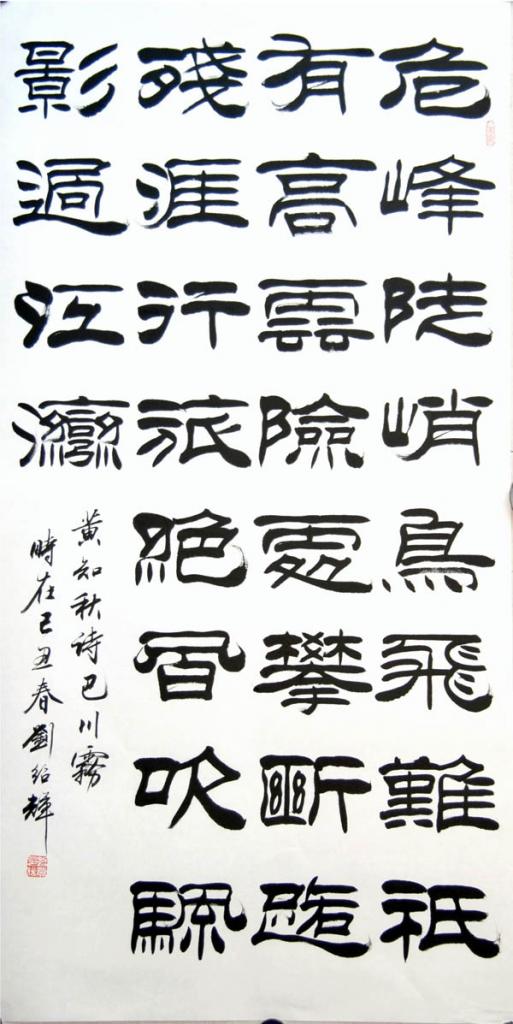 危峰陡峭鳥飛難祇
有高雲險處攀斷路
殘涯行旅絕風吹颿
影過江灣
黃知秋詩巴川霧
時在己丑春劉紹輝